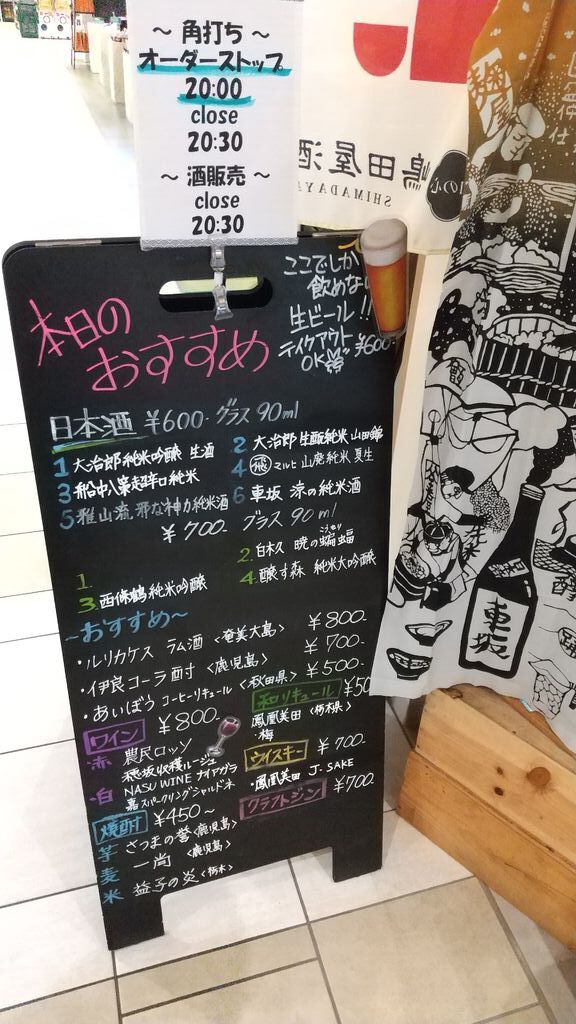 ~ 角打ち ~
オーダーストップ
20:00
close
20:30
~ 酒販売 ~
close
20:30
嶋田屋酒
SHIMADAYA
本日の
おすすめ
ここでしか
飲めな
生ビール!!
テイクアウト
OK ¥600
日本酒 ¥600- グラス 90ml
1 大治郎 純米吟醸 生酒
2 大治郎 生酛純米 山田錦
3 船中八策 超辛口純米
4 飛 マルヒ 山廃純米 夏生
5 雅山流 邪な神力 純米酒
6 車坂 涼の純米酒
¥700- グラス 90ml
1.
2. 白木久 暁の蝙蝠
3. 西條鶴 純米吟醸
4. 醸す森 純米大吟醸
~おすすめ~
・ルリカケス ラム酒 <奄美大島> ¥800-
・伊良コーラ酎 <鹿児島> ¥700-
・あいぼう コーヒーリキュール <秋田県> ¥500-
ワイン ¥800-
赤 農民ロッソ
穂坂収穫ルージュ
白 NASU WINE ナイアガラ
嘉スパークリングシャルドネ
和リキュール ¥50
鳳凰美田 <栃木県>
・梅
ウイスキー ¥700-
・鳳凰美田 J-SAKE
クラフトジン ¥700-
焼酎 ¥450~
芋 さつまの誉 <鹿児島>
麦 一尚 <鹿児島>
米 益子の炎 <栃木>
車坂